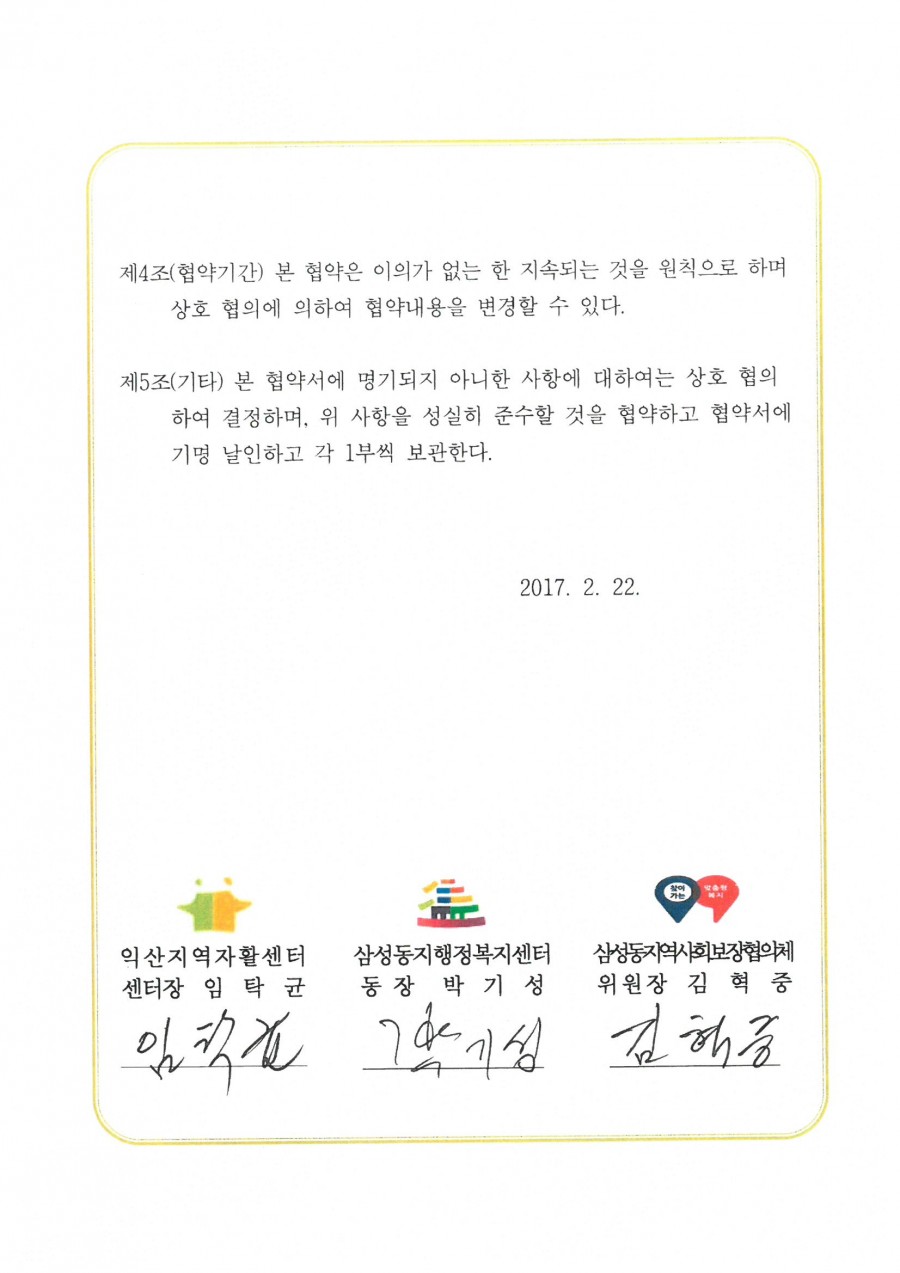 제4조(협약기간) 본 협약은 이의가 없는 한 지속되는 것을 원칙으로 하며
상호 협의에 의하여 협약내용을 변경할 수 있다.
제5조(기타) 본 협약서에 명기되지 아니한 사항에 대하여는 상호 협의
하여 결정하며, 위 사항을 성실히 준수할 것을 협약하고 협약서에
기명 날인하고 각 1부씩 보관한다.
2017. 2. 22.
찾아
가는
맞춤형
복지
익산지역자활센터
센터장 임 탁 균
임탁균
삼성동지행정복지센터
동 장 박 기 성
박기성
삼성동지역사회보장협의체
위원장 김 혁 중
김혁중